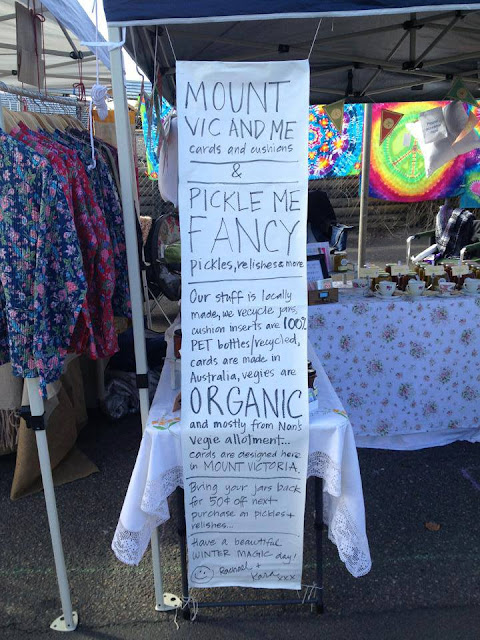 MOUNT
VIC AND ME
cards and cushions
&
PICKLE ME
FANCY
pickles, relishes & more
Our stuff is locally
made, we recycle jars,
cushion inserts are 100%
PET bottles/recycled,
cards are made in
Australia, vegies are
ORGANIC
and mostly from Nan's
vegie allotment...
cards are designed here
in MOUNT VICTORIA.
Bring your jars back
for 50¢ off next
purchase on pickles +
relishes...
Have a beautiful
WINTER MAGIC day!
Rachael +
Kara xxx